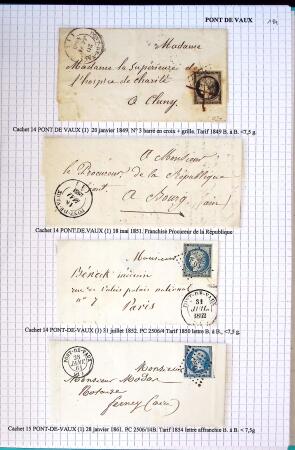 PONT DE VAUX
Madame
Madame la Supérieure de
l'hospice de charité
à Cluny.
Cachet 14 PONT DE VAUX (1) 20 janvier 1849. N° 3 barré en croix + grille. Tarif 1849 B. à B. <7,5 g.
A Monsieur
le Procureur de la République
à Bourg (ain)
Cachet 14 PONT.DE.VAUX (1) 18 mai 1851. Franchise Procureur de la République
Monsieur
rue de palais national
n° 7 Paris
PONT-DE-VAUX
31
JUIL.
1852
Cachet 14 PONT-DE-VAUX (1) 31 juillet 1852. PC 2506/4 Tarif 1850 lettre B. à B., <7,5 g.
PONT-DE-VAUX
28
JANV.
61
Monsieur
Monsieur
Notaire
ferney (ain)
Cachet 15 PONT-DE-VAUX (1) 28 janvier 1861. PC 2506/14B. Tarif 1854 lettre affranchie B. à B. < 7,5g